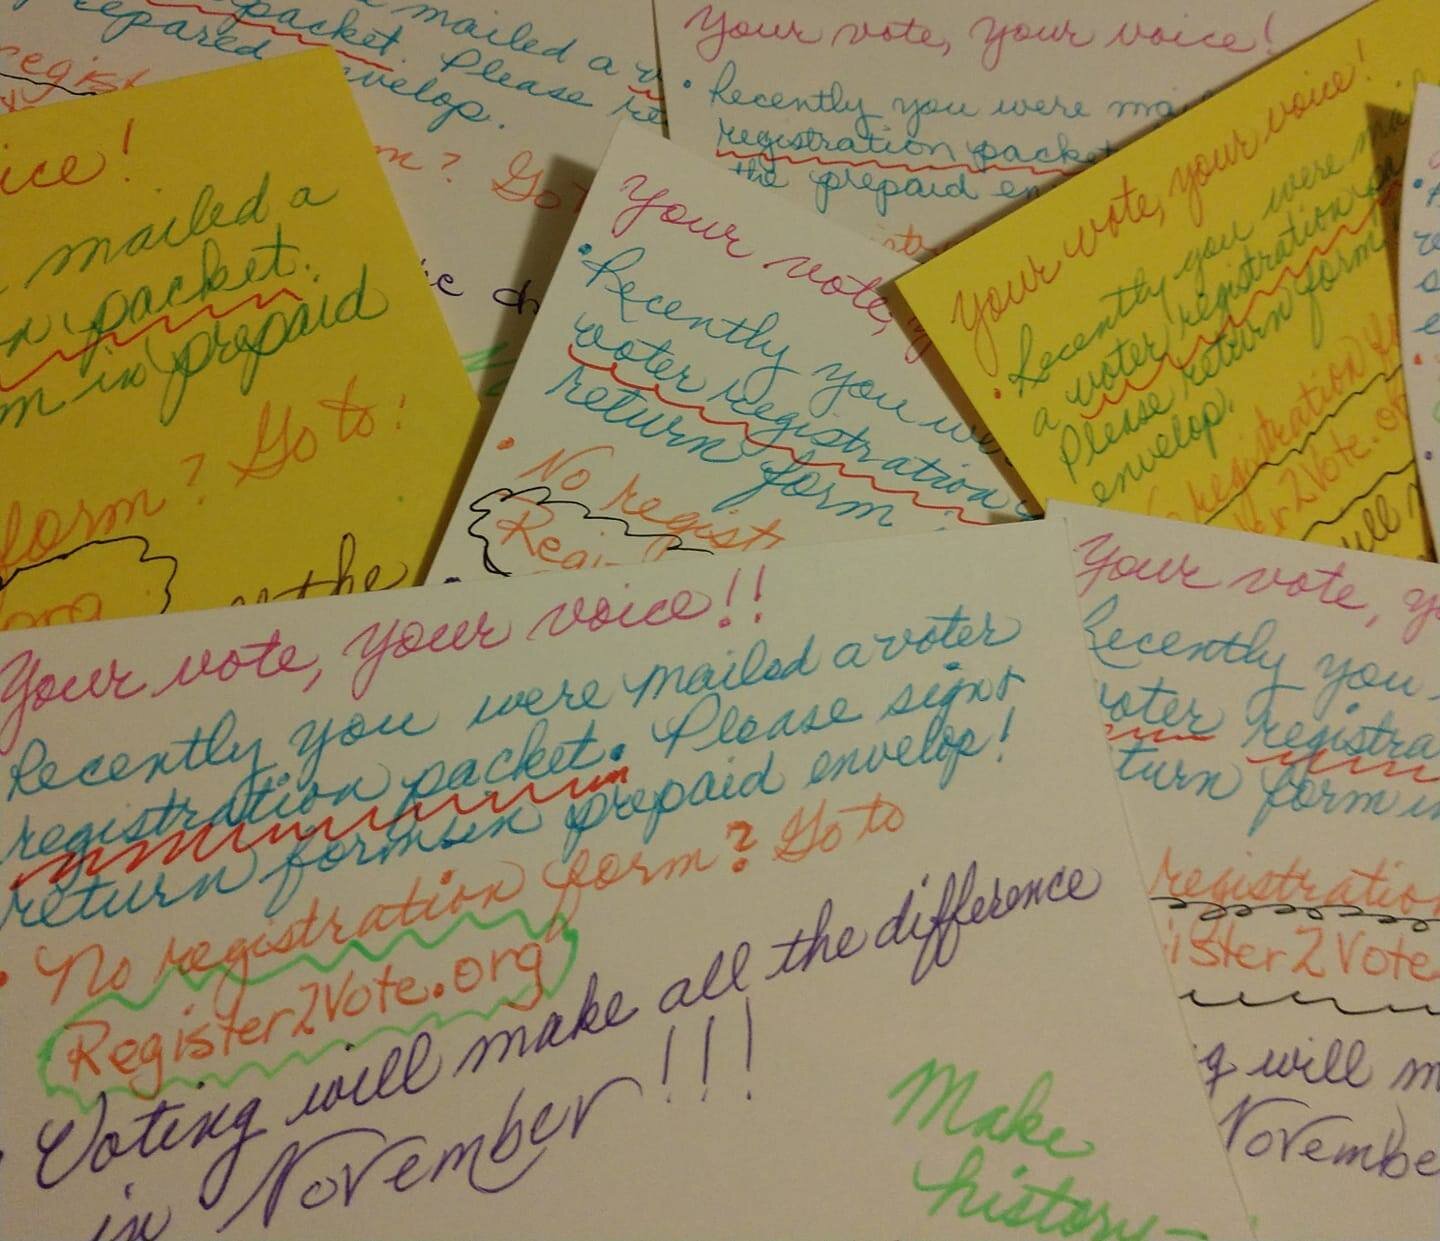 mailed a
packet. Please re
repared envelop.
regist
m? Go
Your vote, your voice!
• Recently you were
registration packet
the prepaid en
oice!
mailed a
n packet.
m in prepaid
form? Go to:
org
the
Your vote,
• Recently you we
voter registration
return form
• No regist
Your vote, your voice!
• Recently you were
a voter registration
Please return form
envelop.
registration
2Vote.or
will
Your vote, your voice!!
Recently you were mailed a voter
registration packet. Please sign +
return form in prepaid envelop!
• No registration form? Go to
Register2Vote.org
Voting will make all the difference
in November!!!
Make
history-
Your vote, yo
Recently you
voter registra
turn form in
registration
ister2Vote
g will m
Novembe